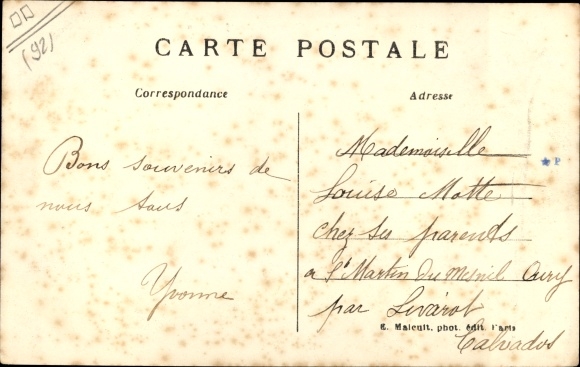 (92)
CARTE POSTALE
Correspondance
Adresse
Bons souvenirs de
nous tous
Yvonne
Mademoiselle
Louise Motte
chez ses parents
a St Martin du Mesnil Oury
par Livarot
E. Malcuit, phot. édit. Paris
Calvados